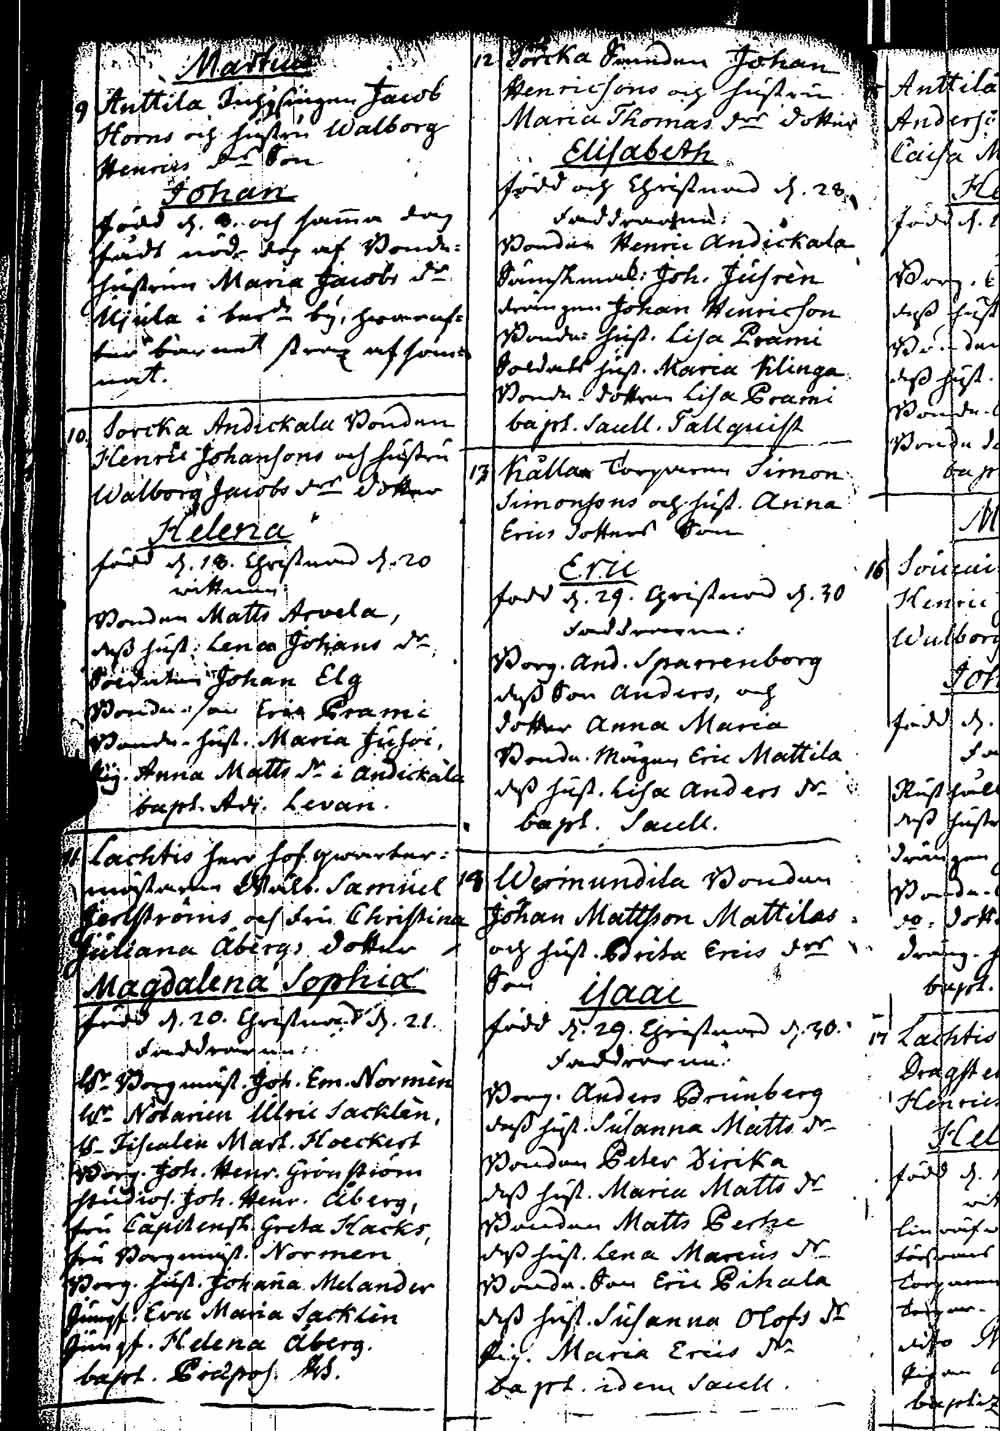 Martius
9 Anttila Inhysingen Jacob
Horns och hustru Walborg
Henrics dr Son
Johan
född d. 8. och samma dag
fådt nöd- dop af Bonde-
hustrun Maria Jacobs dr
Ujula i berde by, hwaref-
ter barnet strax afsom-
nat.
10. Sorcka Andickala Bonden
Henric Johansons och hustru
Walborg Jacobs drs dotter
Helena
född d. 18. Christnad d. 20
wittnen
Bonden Matts Arvela,
dess hust: Lena Johans dr,
Soldaten Johan Elg
Bonde-son Prami
Bonde-hust. Maria Jusoi,
Pig. Anna Matts dr i Andickala
bapt. Adj. Levan.
11 Lachtis herr hof qwarter-
mästaren Wälb. Samuel
och fru Christina
Juliana Åbergs dotter
Magdalena Sophia
född d. 20. Christnad d. 21.
Faddrarne:
Hr Borgmäst. Joh. Em. Normèn
Hr Notarien Ulric Sacklèn,
Hr Fiscalen Mart. Hoeckert
Borg. Joh. Henr. Grönström
studios. Joh. Henr. Åberg,
fru Capitensk. Greta Hacks,
fru Borgmäst. Normen
Borg. hust. Johana Melander
Jungf. Eva Maria Sacklèn
Jungf. Helena Åberg.
bapt. Præpos.
12 Sorcka Bonden Johan
Henricsons och hustru
Maria Thomas drs dotter
Elisabeth
född och Christnad d. 28.
Faddrarne:
Bonden Henric Andickala
Joh. Juhrèn
drängen Johan Henricson
Bonde-hust. Lisa Prami
Soldats hust. Maria Klinga
Bonde-dottren Lisa Prami
bapt. Sacell. Tallquist
13 Källa Torparen Simon
Simonsons och hust. Anna
Erics dotters Son
Eric
född d. 29. Christnad d. 30
Faddrarne:
Borg. And. Sparrenborg
dess Son Anders, och
dotter Anna Maria
Bonde-mågen Eric Mattila
dess hust. Lisa Anders dr
bapt. Sacell.
14 Wermundila Bonden
Johan Mattsson Mattilas
och hust. Brita Erics drs
Son
Isaac
född d. 29. Christnad d. 30.
Faddrarne:
Borg. Anders Brunberg
dess hust. Susanna Matts dr
Bonden Peter Dirika
dess hust. Maria Matts dr
Bonden Matts Perke
dess hust. Lena Marcus dr
Bonde-Son Eric Pihala
dess hust. Susanna Olofs dr
Pig. Maria Erics dr
bapt. idem Sacell.
Anttila
Anders
Caisa
född d.
Borg.
dess hust
dess hust.
Bonde-
bapt
16
Henric
Walborg
Joh
född d.
Rusthåll
dess hustr
drängen
Bonde-
do-dott
dräng-
bapt.
17 Lachtis
Henrics
Hel
född d.
Torparen
Torpar-
dito
Pigan
baptiz